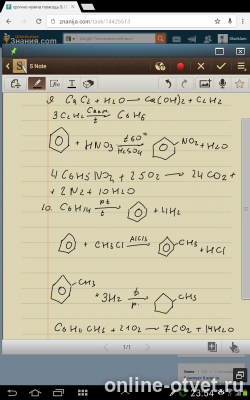 срочно нужна помощь S
znanija.com/task/14425513
Знания.com
S Note
9. CaC2 + H2O → Ca(OH)2 + C2H2
3C2H2 C акт. t → C6H6
+ HNO3 t 60° H2SO4 → NO2 + H2O
4C6H5NO2 + 25O2 → 24CO2 +
+ 2N2 + 10H2O
10. C6H14 Pt t → + 4H2
+ CH3Cl AlCl3 → CH3 + HCl
CH3
+ 3H2 t p → CH3
C6H11CH3 + 21O2 → 7CO2 + 14H2O
1/1
23:54
online-otvet.ru